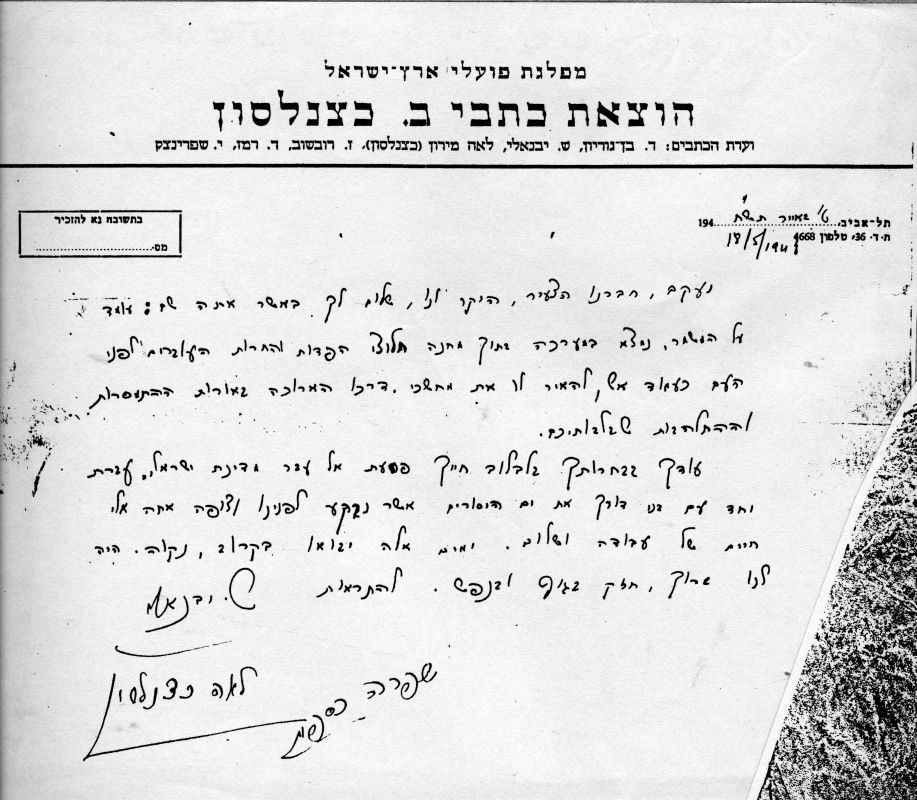 מפלגת פועלי ארץ־ישראל
הוצאת כתבי ב. כצנלסון
ועדת הכתבים: ד. בן־גוריון, ש. יבנאלי, לאה מירון (כצנלסון), ז. רובשוב, ד. רמז, י. שפרינצק
בתשובה נא להזכיר
מס.
תל־אביב, ט' באייר תש"ח 194
ת. ד. 36, טלפון 4668
18/5/1948
יעקב, חברנו הצעיר, היקר לנו, שלום לך באשר אתה שם: עומד
על המשמר, נמצא במערכה בתוך מחנה חלוצי הפדות והחרות העוברים לפני
העם כעמוד אש, להאיר לו את מחשכי דרכו הארוכה באורות ההתמסרות
וההתלהבות שבלבותיכם.
עודך בבחרותך בלבלוב חייך פסעת אל עבר מדינת ישראל, עברת
יחד עם בני דורך את ים היסורים אשר נבקע לפנינו וצופה אתה אלי
חיים של עבודה ושלום. ימים אלה יבואו בקרוב, נקוה. היה
לנו ברוך, חזק בגוף ובנפש. להתראות ש. יבנאלי
לאה כצנלסון
שפרה